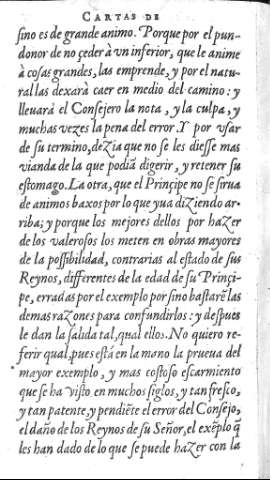 CARTAS DE
sino es de grande animo. Porque por el pun-
donor de no çeder à vn inferior, que le anime
à cosas grandes, las emprende, y por el natu-
ral las dexarà caer en medio del camino: y
lleuarà el Consejero la nota, y la culpa, y
muchas vezes la pena del error. Y por vsar
de su termino, dezia que no se les diesse mas
vianda de la que podiã digerir, y retener su
estomago. La otra, que el Prinçipe no se sirua
de animos baxos por lo que yua diziendo ar-
riba; y porque los mejores dellos por hazer
de los valerosos los meten en obras mayores
de la possibilidad, contrarias al estado de sus
Reynos, differentes de la edad de su Prinçi-
pe, erradas por el exemplo por sino bastarẽ las
demas razones para confundirlos: y despues
le dan la salida tal, qual ellos. No quiero re-
ferir qual, pues està en la mano la prueua del
mayor exemplo, y mas costoso escarmiento
que se ha visto en muchos siglos, y tan fresco,
y tan patente, y pendiẽte el error del Consejo,
el daño de los Reynos de su Señor, el exẽplo q̃
les han dado de lo que se puede hazer con la